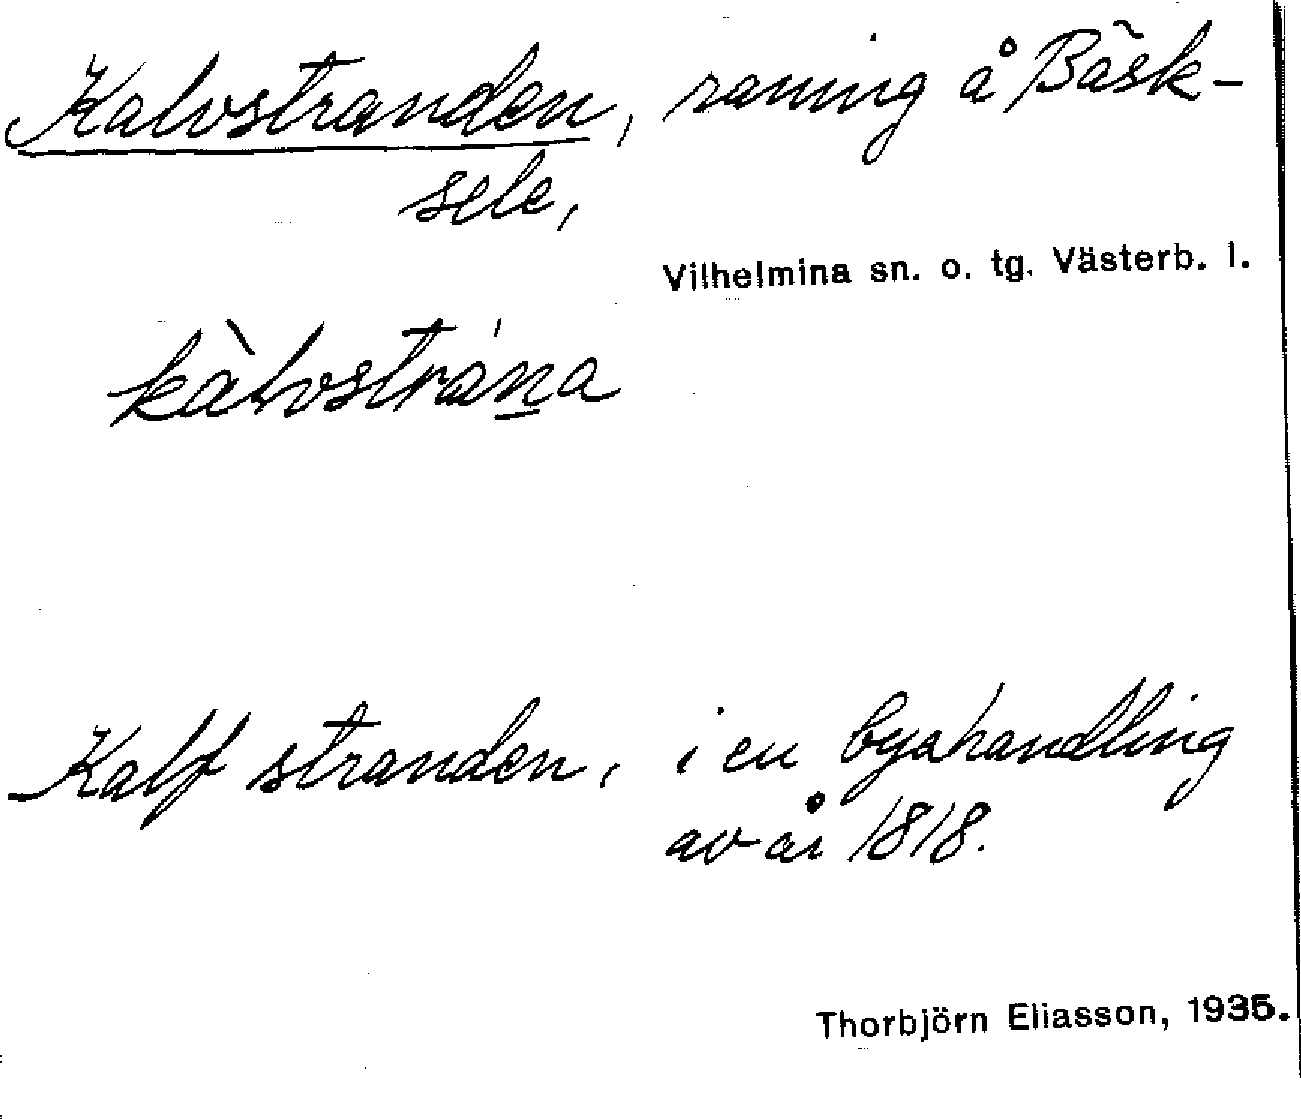 Kalvstranden, raning å Bäsk-
sele,
Vilhelmina sn. o. tg. Västerb. l.
kàlvstrána
Kalf stranden, i en byahandling
av år 1818.
Thorbjörn Eliasson, 1935.